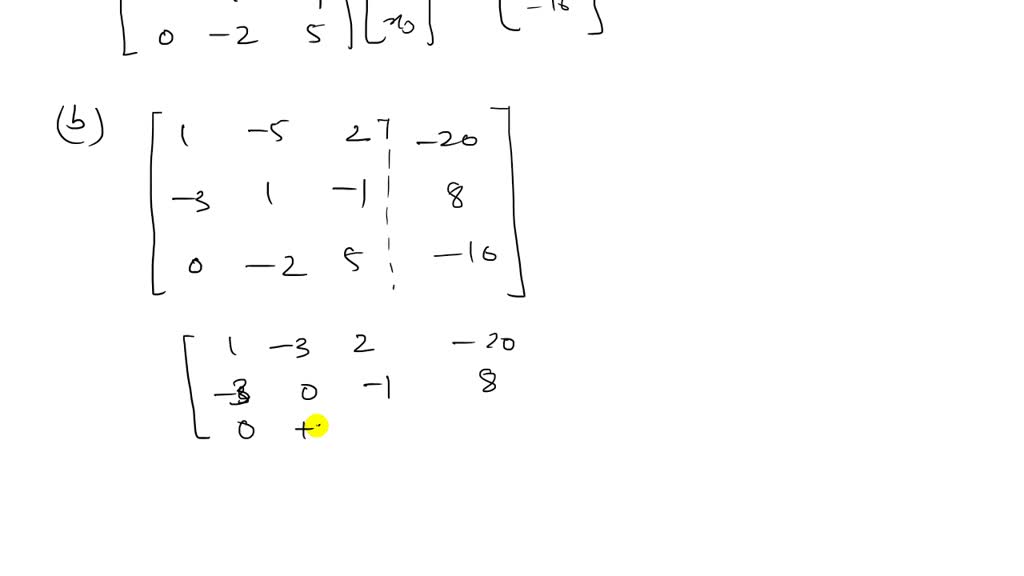 0 -2 5 -16
(b) 1 -5 2 -20
-3 1 -1 8
0 -2 5 -16
1 -3 2 -20
0 -1 8
0 +